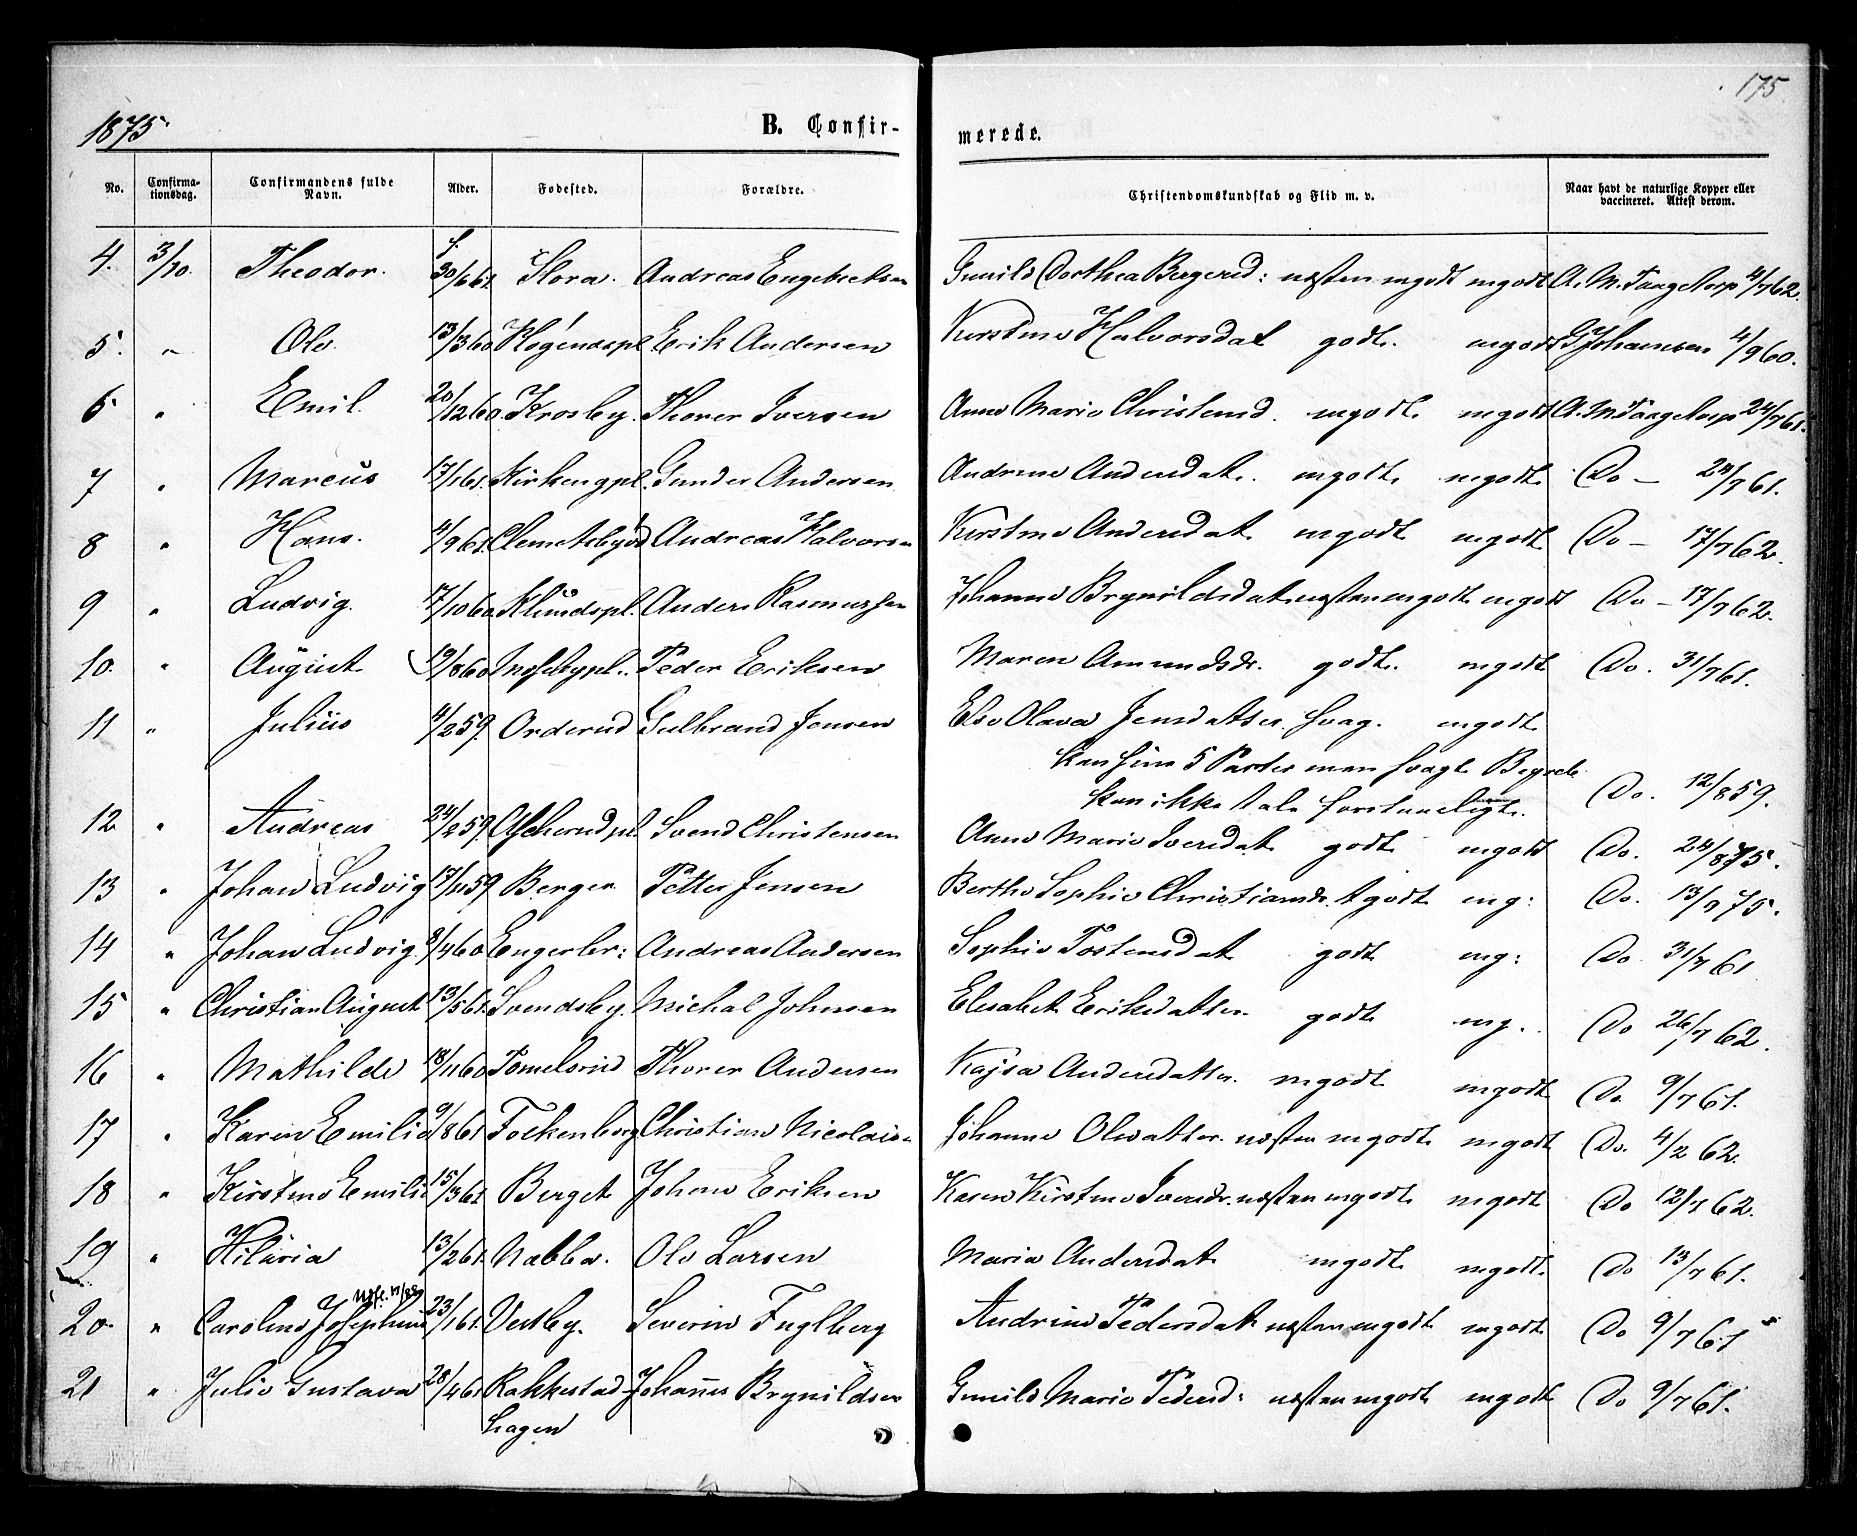 175
1875
B. Confir-
merede.
No. Confirma-tionsdag. Confirmandens fulde Navn. Alder. Fødested. Forældre. Christendomskundskab og Flid m. v. Naar havt de naturlige Kopper eller vaccineret. Attest derom.
4. 3/10. Theodor. f. 30/6 61. Flora. Andreas Engebretsen Gunild Dorthea Bergerud: næsten mgodt mgodt A. M. 4/7 62.
5. " Ole 13/3 60 Høgendspl Erik Andersen Kirstine Halvorsdat godt. mgodt G Johansen 4/9 60.
6 " Emil. 20/12 60 Krosby. Thorer Iversen Anne Marie Christensd. mgodt mgodt A. M. 24/7 61.
7 " Marcus 17/1 61. Kirkengpl. Gunder Andersen Andrine Andersdat. mgodt mgodt Do - 24/7 61.
8 " Hans. 4/9 61. Andreas Halvorsen Kirstine Andersdat mgodt mgodt Do - 17/7 62.
9 " Ludvig. 17/10 60 Klundspl. Anders Rasmussen Johanne Brynildsdat. næsten mgodt mgodt Do - 17/7 62.
10. " August 19/8 60 Peder Eriksen Maren Amundsdr. godt. mgodt Do. 31/7 61.
11 " Julius 4/2 59. Orderud Gulbrand Jensen Else Olava Jensdatter. svag. mgodt
kan sine 5 Parter men svagt Begreb
kan ikke tale forstaaeligt. Do. 12/8 59.
12 " Andreas 24/2 59. Svend Christensen Anne Marie Iversdat godt mgodt Do. 24/8 75.
13 " Johan Ludvig 17/11 59 Berger Petter Jensen Berthe Sophie Christiansdr. tgodt mg: Do. 13/9 75.
14 " Johan Ludvig. 9/4 60 Engerbr: Andreas Andersen Sophie Tostensdat godt mg: Do. 31/7 61
15 " Christian August 13/5 61. Svendsby. Michal Johnsen Elisabet Eriksdatter. godt mg. Do 26/7 62.
16 " Mathilde 18/11 60 Tomelsrud Thorer Andersen Kajsa Andersdatter. mgodt mgodt Do. 9/7 61.
17 " Karen Emilie 9/8 61 Fockenborg Christian Nicolais- Johanne Olsdatter. næsten mgodt mgodt Do. 4/2 62.
18 " Kirstine Emilie 15/3 61. Berget Johans Eriksen Karen Kirstine Iversdr. næsten mgodt mgodt Do 12/7 62.
19 " Hilaria 13/2 61. Nabba. Ole Larsen Maria Andersdat mgodt mgodt. Do 13/7 61.
20. " Carolina Josephine 23/1 61. Vestby. Severin Fuglberg Andrine Pedersdat. næsten mgodt mgodt Do 9/7 61
21 " Julie Gustava 28/4 61 Rakkestad- Johannes Brynildsen Gunild Marie Pedersd: næsten mgodt mgodt Do 9/7 61.
hagen